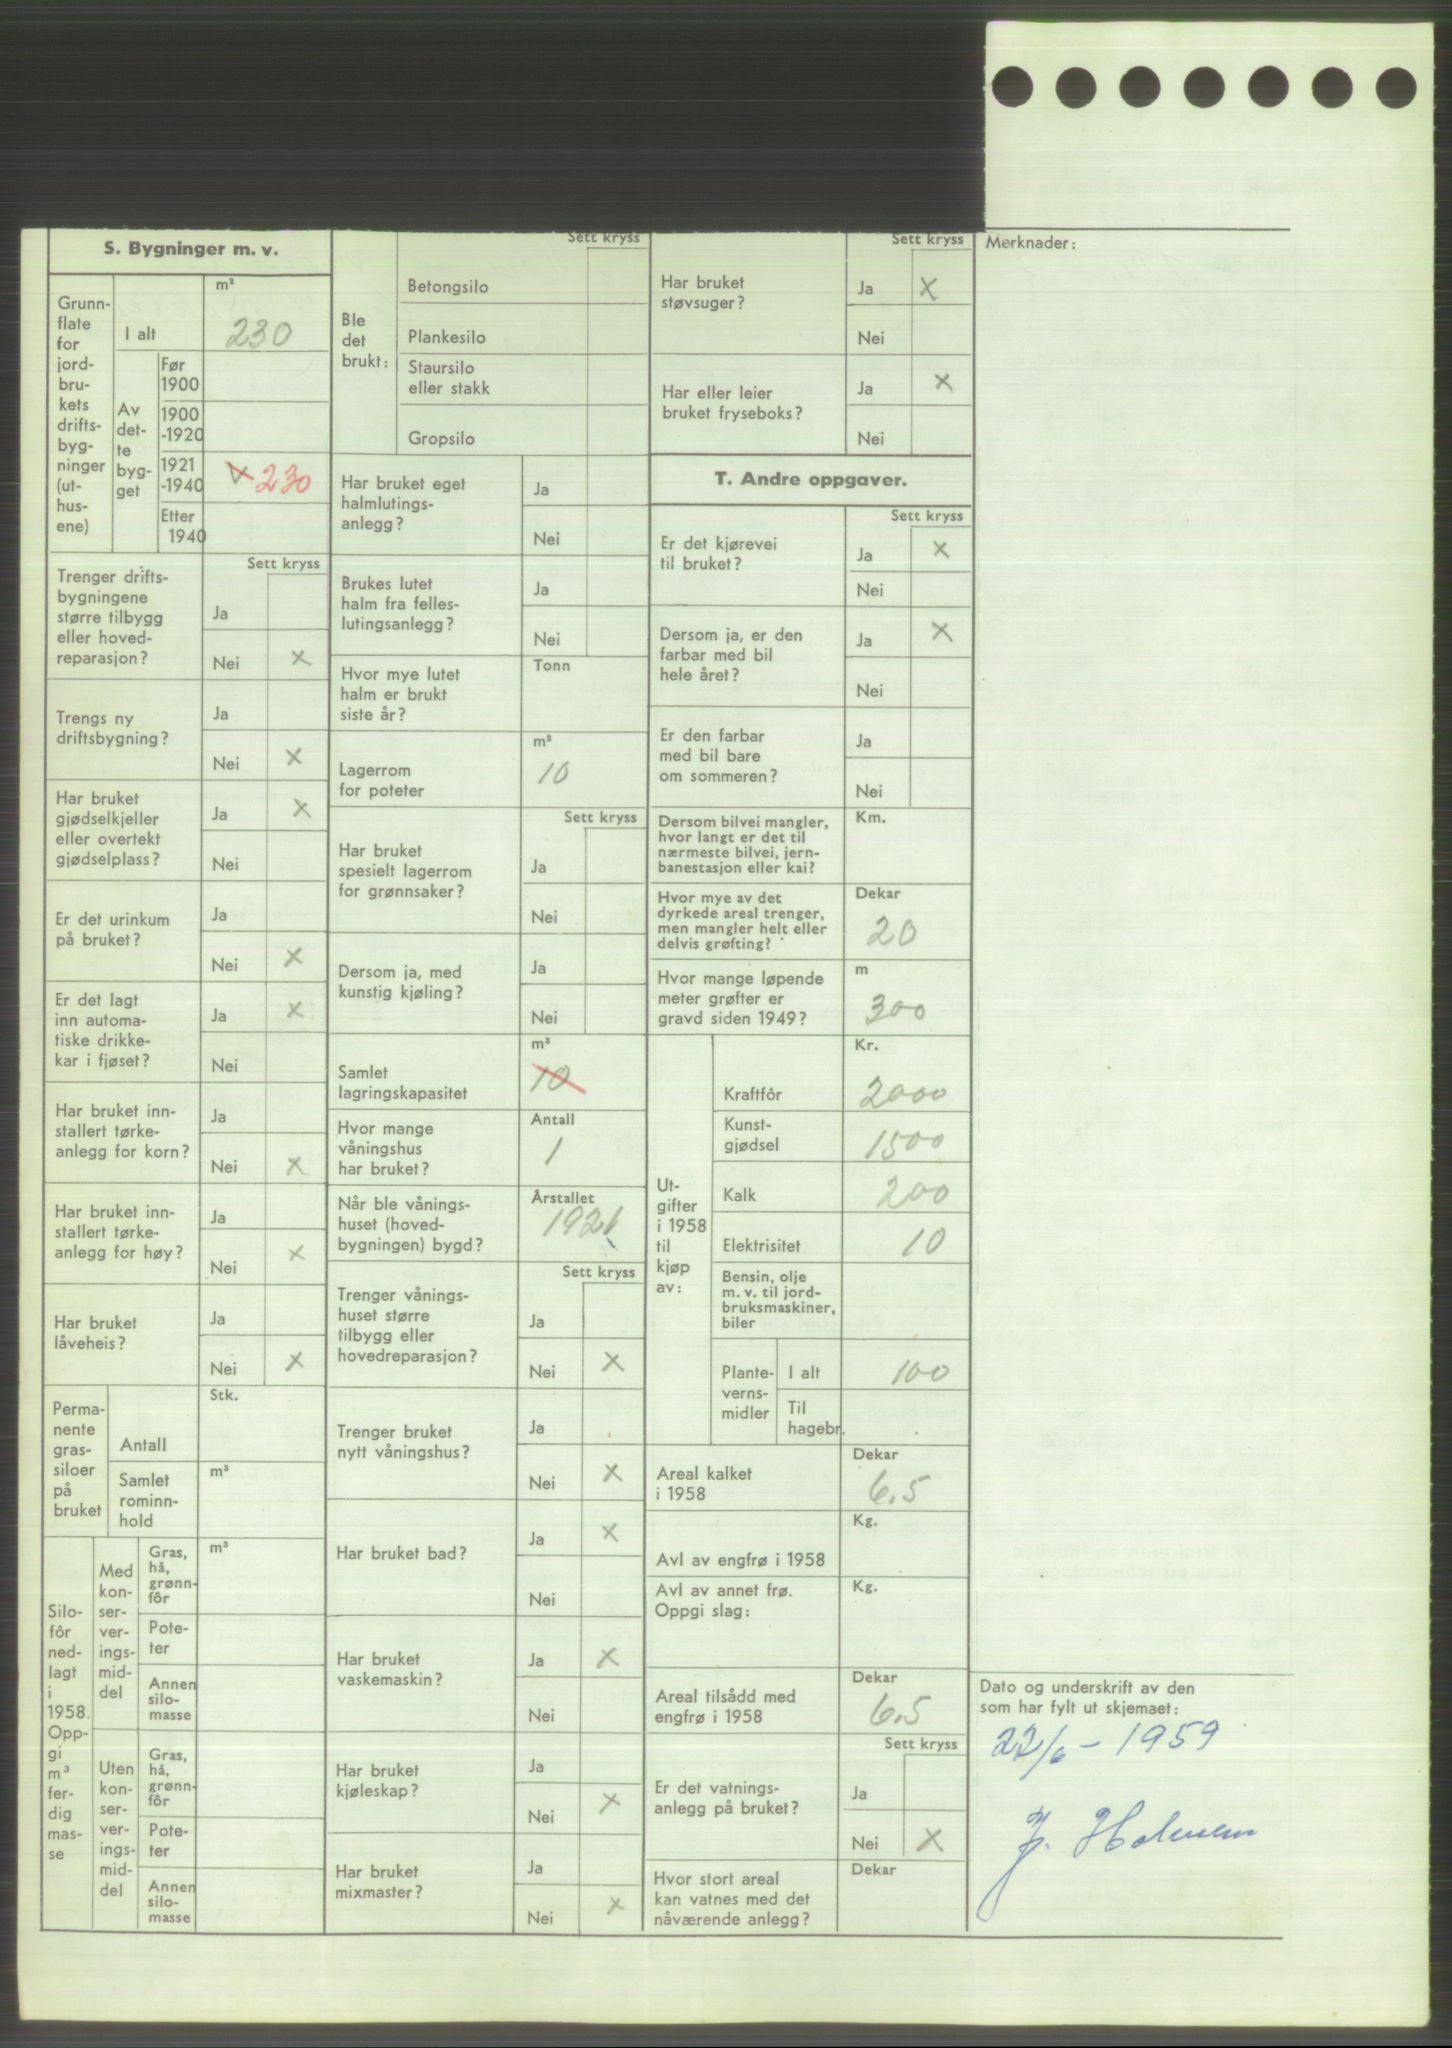 S. Bygninger m. v.
Grunn-
flate
for
jord-
bru-
kets
drifts-
byg-
ninger
(ut-
hus-
ene)
m²
I alt
230
Av
det-
te
byg-
get
Før
1900
1900
-1920
1921
-1940
230
Etter
1940
Sett kryss
Trenger drifts-
bygningene
større tilbygg
eller hoved-
reparasjon?
Ja
Nei X
Trengs ny
driftsbygning?
Ja
Nei X
Har bruket
gjødselkjeller
eller overtekt
gjødselplass?
Ja X
Nei
Er det urinkum
på bruket?
Ja
Nei X
Er det lagt
inn automa-
tiske drikke-
kar i fjøset?
Ja X
Nei
Har bruket inn-
stallert tørke-
anlegg for korn?
Ja
Nei X
Har bruket inn-
stallert tørke-
anlegg for høy?
Ja
Nei X
Har bruket
låveheis?
Ja
Nei X
Perma-
nente
gras-
siloer
på
bruket
Stk.
Antall
Samlet
rominn-
hold
m³
Silo-
fôr
ned-
lagt
i
1958.
Opp-
gi
m³
fer-
dig
mas-
se
Med
kon-
ser-
ver-
ings-
mid-
del
Gras,
hå,
grønn-
fôr
m³
Pote-
ter
Annen
silo-
masse
Uten
kon-
ser-
ver-
ings-
mid-
del
Gras,
hå,
grønn-
fôr
Pote-
ter
Annen
silo-
masse
Sett kryss
Ble
det
brukt:
Betongsilo
Plankesilo
Staursilo
eller stakk
Gropsilo
Har bruket eget
halmlutings-
anlegg?
Ja
Nei
Brukes lutet
halm fra felles-
lutingsanlegg?
Ja
Nei
Hvor mye lutet
halm er brukt
siste år?
Tonn
Lagerrom
for poteter
m²
10
Sett kryss
Har bruket
spesielt lagerrom
for grønnsaker?
Ja
Nei
Dersom ja, med
kunstig kjøling?
Ja
Nei
Samlet
lagringskapasitet
m³
10
Hvor mange
våningshus
har bruket?
Antall
1
Når ble vånings-
huset (hoved-
bygningen) bygd?
Årstallet
1921
Sett kryss
Trenger vånings-
huset større
tilbygg eller
hovedreparasjon?
Ja
Nei X
Trenger bruket
nytt våningshus?
Ja
Nei X
Har bruket bad?
Ja X
Nei
Har bruket
vaskemaskin?
Ja X
Nei
Har bruket
kjøleskap?
Ja
Nei X
Har bruket
mixmaster?
Ja
Nei X
Sett kryss
Har bruket
støvsuger?
Ja X
Nei
Har eller leier
bruket fryseboks?
Ja X
Nei
T. Andre oppgaver.
Sett kryss
Er det kjørevei
til bruket?
Ja X
Nei
Dersom ja, er den
farbar med bil
hele året?
Ja X
Nei
Er den farbar
med bil bare
om sommeren?
Ja
Nei
Dersom bilvei mangler,
hvor langt er det til
nærmeste bilvei, jern-
banestasjon eller kai?
Km.
Hvor mye av det
dyrkede areal trenger,
men mangler helt eller
delvis grøfting?
Dekar
20
Hvor mange løpende
meter grøfter er
gravd siden 1949?
m
300
Ut-
gifter
i 1958
til
kjøp
av:
Kr.
Kraftfôr
2000
Kunst-
gjødsel
1500
Kalk
200
Elektrisitet
10
Bensin, olje
m. v. til jord-
bruksmaskiner,
biler
Plante-
verns-
midler
I alt
100
Til
hagebr.
Areal kalket
i 1958
Dekar
6.5
Avl av engfrø i 1958
Kg.
Avl av annet frø.
Oppgi slag:
Kg.
Areal tilsådd med
engfrø i 1958
Dekar
6.5
Sett kryss
Er det vatnings-
anlegg på bruket?
Ja
Nei X
Hvor stort areal
kan vatnes med det
nåværende anlegg?
Dekar
Merknader:
Dato og underskrift av den
som har fylt ut skjemaet:
22/6 - 1959